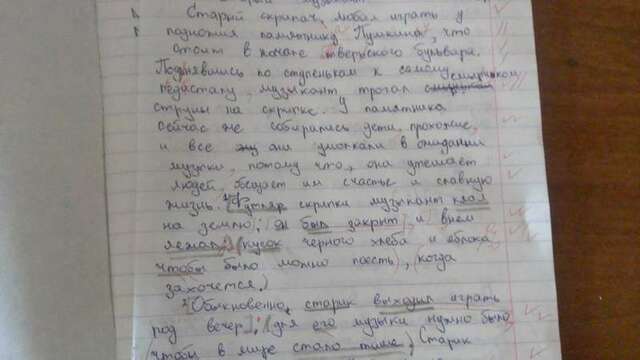 Старый музыкант.
Старый скрипач любил играть у
подножия памятнику Пушкина, что
стоит в начале тверского бульвара.
Поднявшись по ступенькам к самому
педасталу, музыкант трогал смычком
струны на скрипке. У памятника
сейчас же собирались дети, прохожие,
и все они умолкали в ожидании
музыки, потому что, она утешает
людей, обещает им счастье и славную
жизнь. Футляр скрипки музыкант клал
на землю; он был закрыт, и внем
лежал кусок черного хлеба и яблока
чтобы было можно поесть, когда
захочется.
Обыкновенно, старик выходил играть
под вечер: для его музыки нужно было
чтобы в мире стало тише. Старик